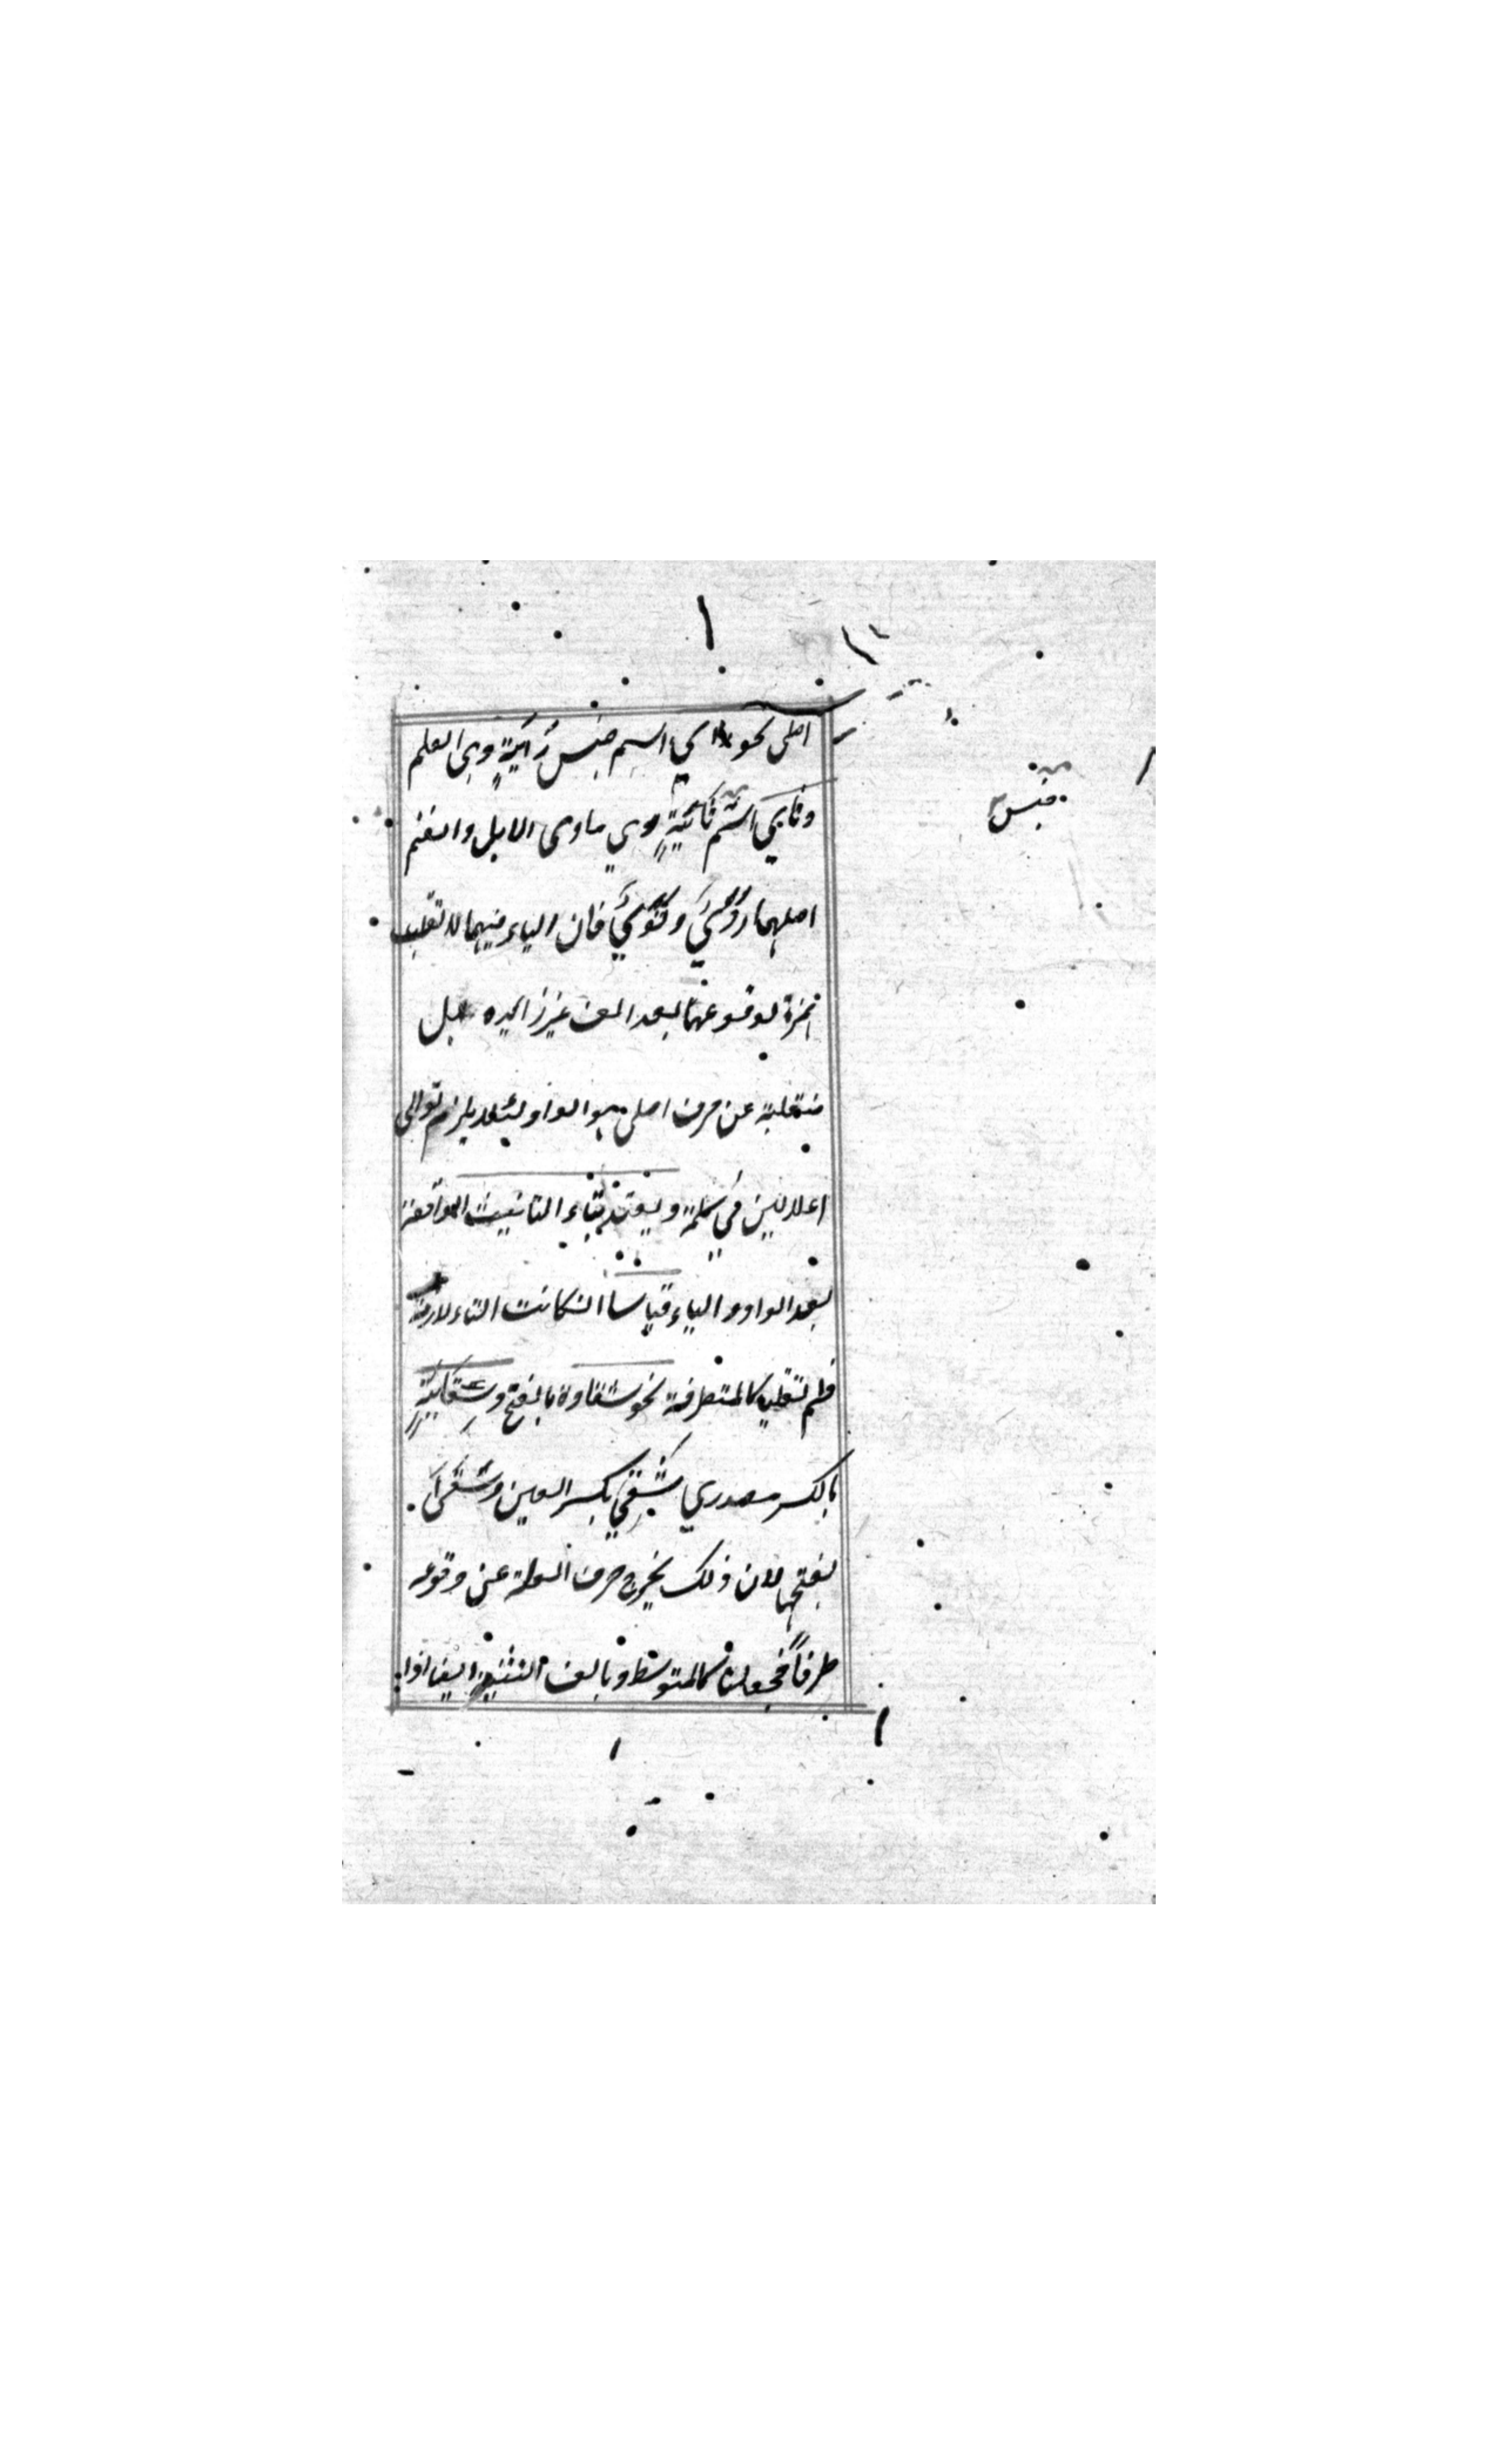 اصلى نحو راي اسم جنس رَايَةٍ وهى العلم
وثاي اسم ثَايَةٍ وهي ماوى الابل والغنم
اصلهما رَوَيَ وثَوَيَ فان الياء فيهما لا تقلب
همزة لوقوعها بعد الف غير زايده بل
منقلبة عن حرف اصلى هو الواو لئلا يلزم توالى
اعلالين في كلمة ويعتد بتاء التانيث الواقعة
بعد الواو والياء قياسا ان كانت التاء لازمة
فلم تقلبا كالمتطرفة نحو شقاوة بالفتح وسِقَايَةٍ
بالكسر مصدري شَقِيَ بكسر العين وسَقَى
بفتحها لان ذلك يخرج حرف العلة عن وقوعه
طرفاً فجعلت كالمتوسط وبالف التثنية ايضا اذا
جنس